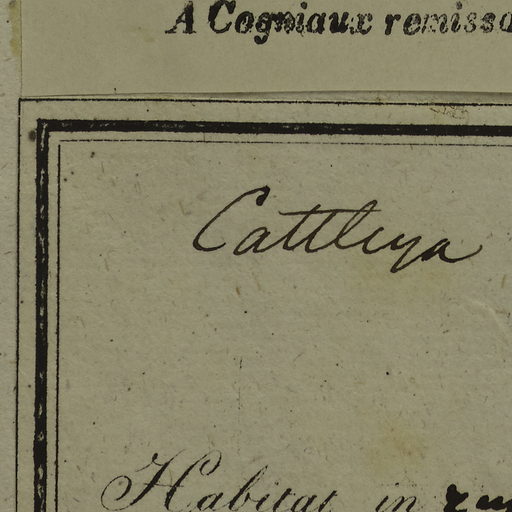 A Cogniaux remiss
Cattleya
Habitat in